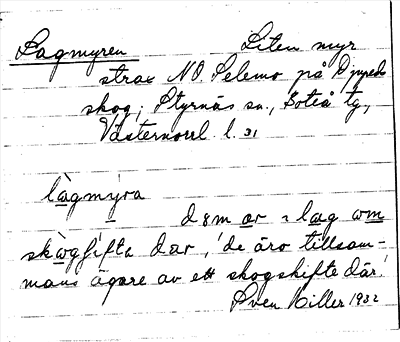 Lagmyren Liten myr
strax NO. Selemo på Djupeds
skog, Styrnäs sn., Boteå tg,
Västernorrl. l. 31
lågmýra
d8m ær ı læg om
skògfífta dær, 'de äro tillsam-
mans ägare av ett skogskifte där.'
Sven Hiller 1932